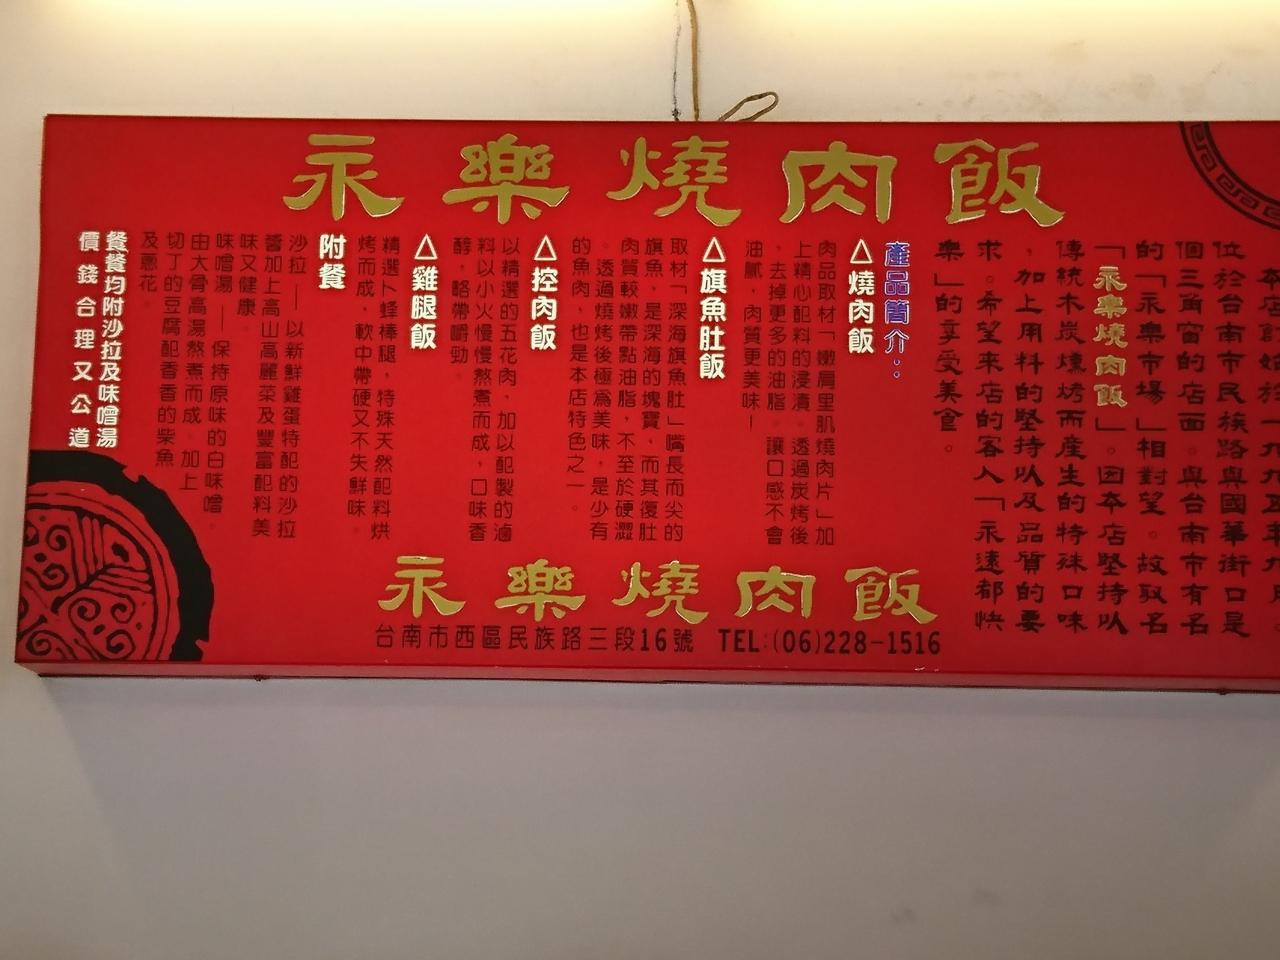 永樂燒肉飯
位於台南市民族路與國華街口是
個三角窗的店面。與台南市有名
的「永樂市場」相對望。故取名
「永樂燒肉飯」。因本店堅持以
傳統木炭燻烤而產生的特殊口味
，加上用料的堅持以及品質的要
求。希望來店的客人「永遠都快
樂」的享受美食。
產品簡介：
△燒肉飯
肉品取材「嫩肩里肌燒肉片」加
上精心配料的浸漬。透過炭烤後
，去掉更多的油脂。讓口感不會
油膩，肉質更美味—
△旗魚肚飯
取材「深海旗魚肚」嘴長而尖的
旗魚，是深海的塊寶，而其復肚
肉質較嫩帶點油脂，不至於硬澀
。透過燒烤後極為美味，是少有
的魚肉，也是本店特色之一。
△控肉飯
以精選的五花肉，加以配製的滷
料以小火慢慢熬煮而成，口味香
醇，略帶嚼勁。
△雞腿飯
精選卜蜂棒腿，特殊天然配料烘
烤而成，軟中帶硬又不失鮮味。
附餐
沙拉—以新鮮雞蛋特配的沙拉
醬加上高山高麗菜及豐富配料美
味又健康。
味噌湯—保持原味的白味噌。
由大骨高湯熬煮而成。加上
切丁的豆腐配香香的柴魚
及蔥花。
餐餐均附沙拉及味噌湯
價錢合理又公道
永樂燒肉飯
台南市西區民族路三段16號 TEL:(06)228-1516